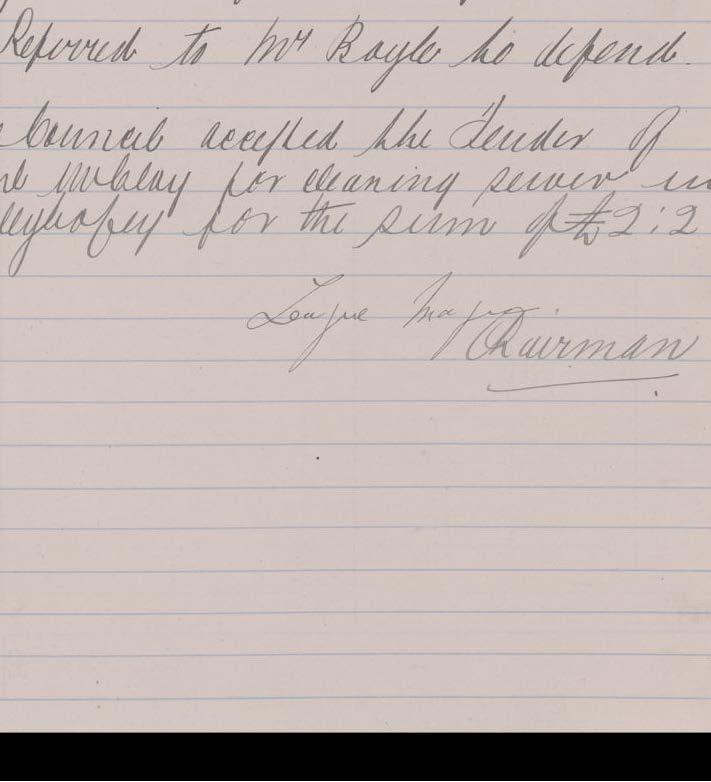 Referred to Mr Boyle to defend.
Council accepted the Tender of
McClay for cleaning sewer in
for the sum of £2:2
Chairman